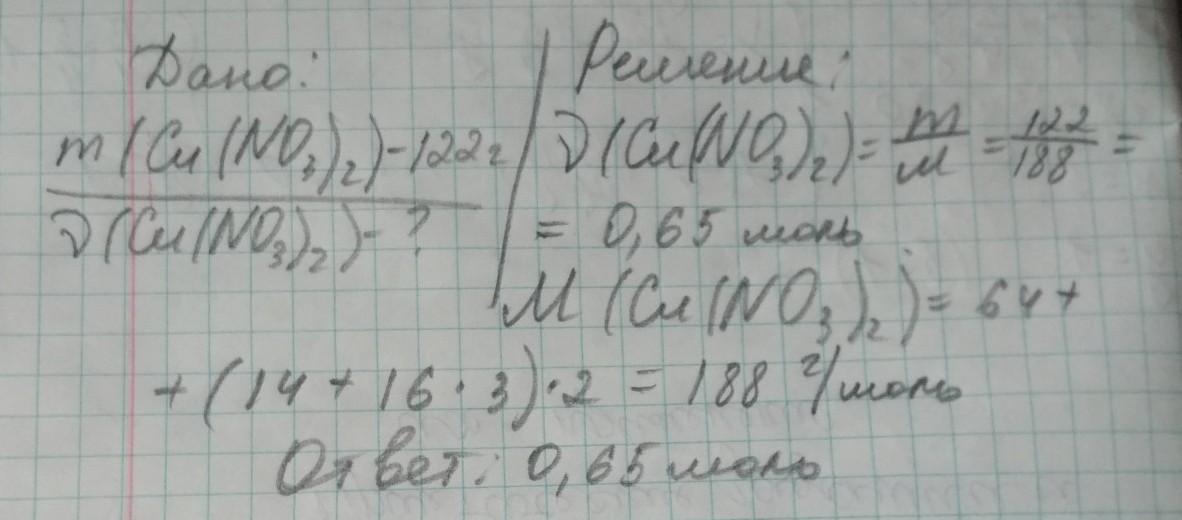 Дано:
m(Cu(NO3)2)-122г
ν(Cu(NO3)2)-?
Решение:
ν(Cu(NO3)2)=m/M=122/188=
= 0,65 моль
M(Cu(NO3)2)= 64+
+(14+16·3)·2=188 г/моль
Ответ: 0,65 моль